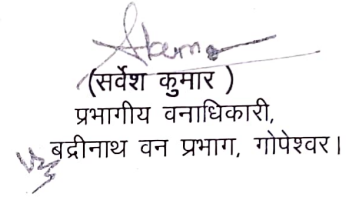 (सर्वेश कुमार )
प्रभागीय वनाधिकारी,
बद्रीनाथ वन प्रभाग, गोपेश्वर।